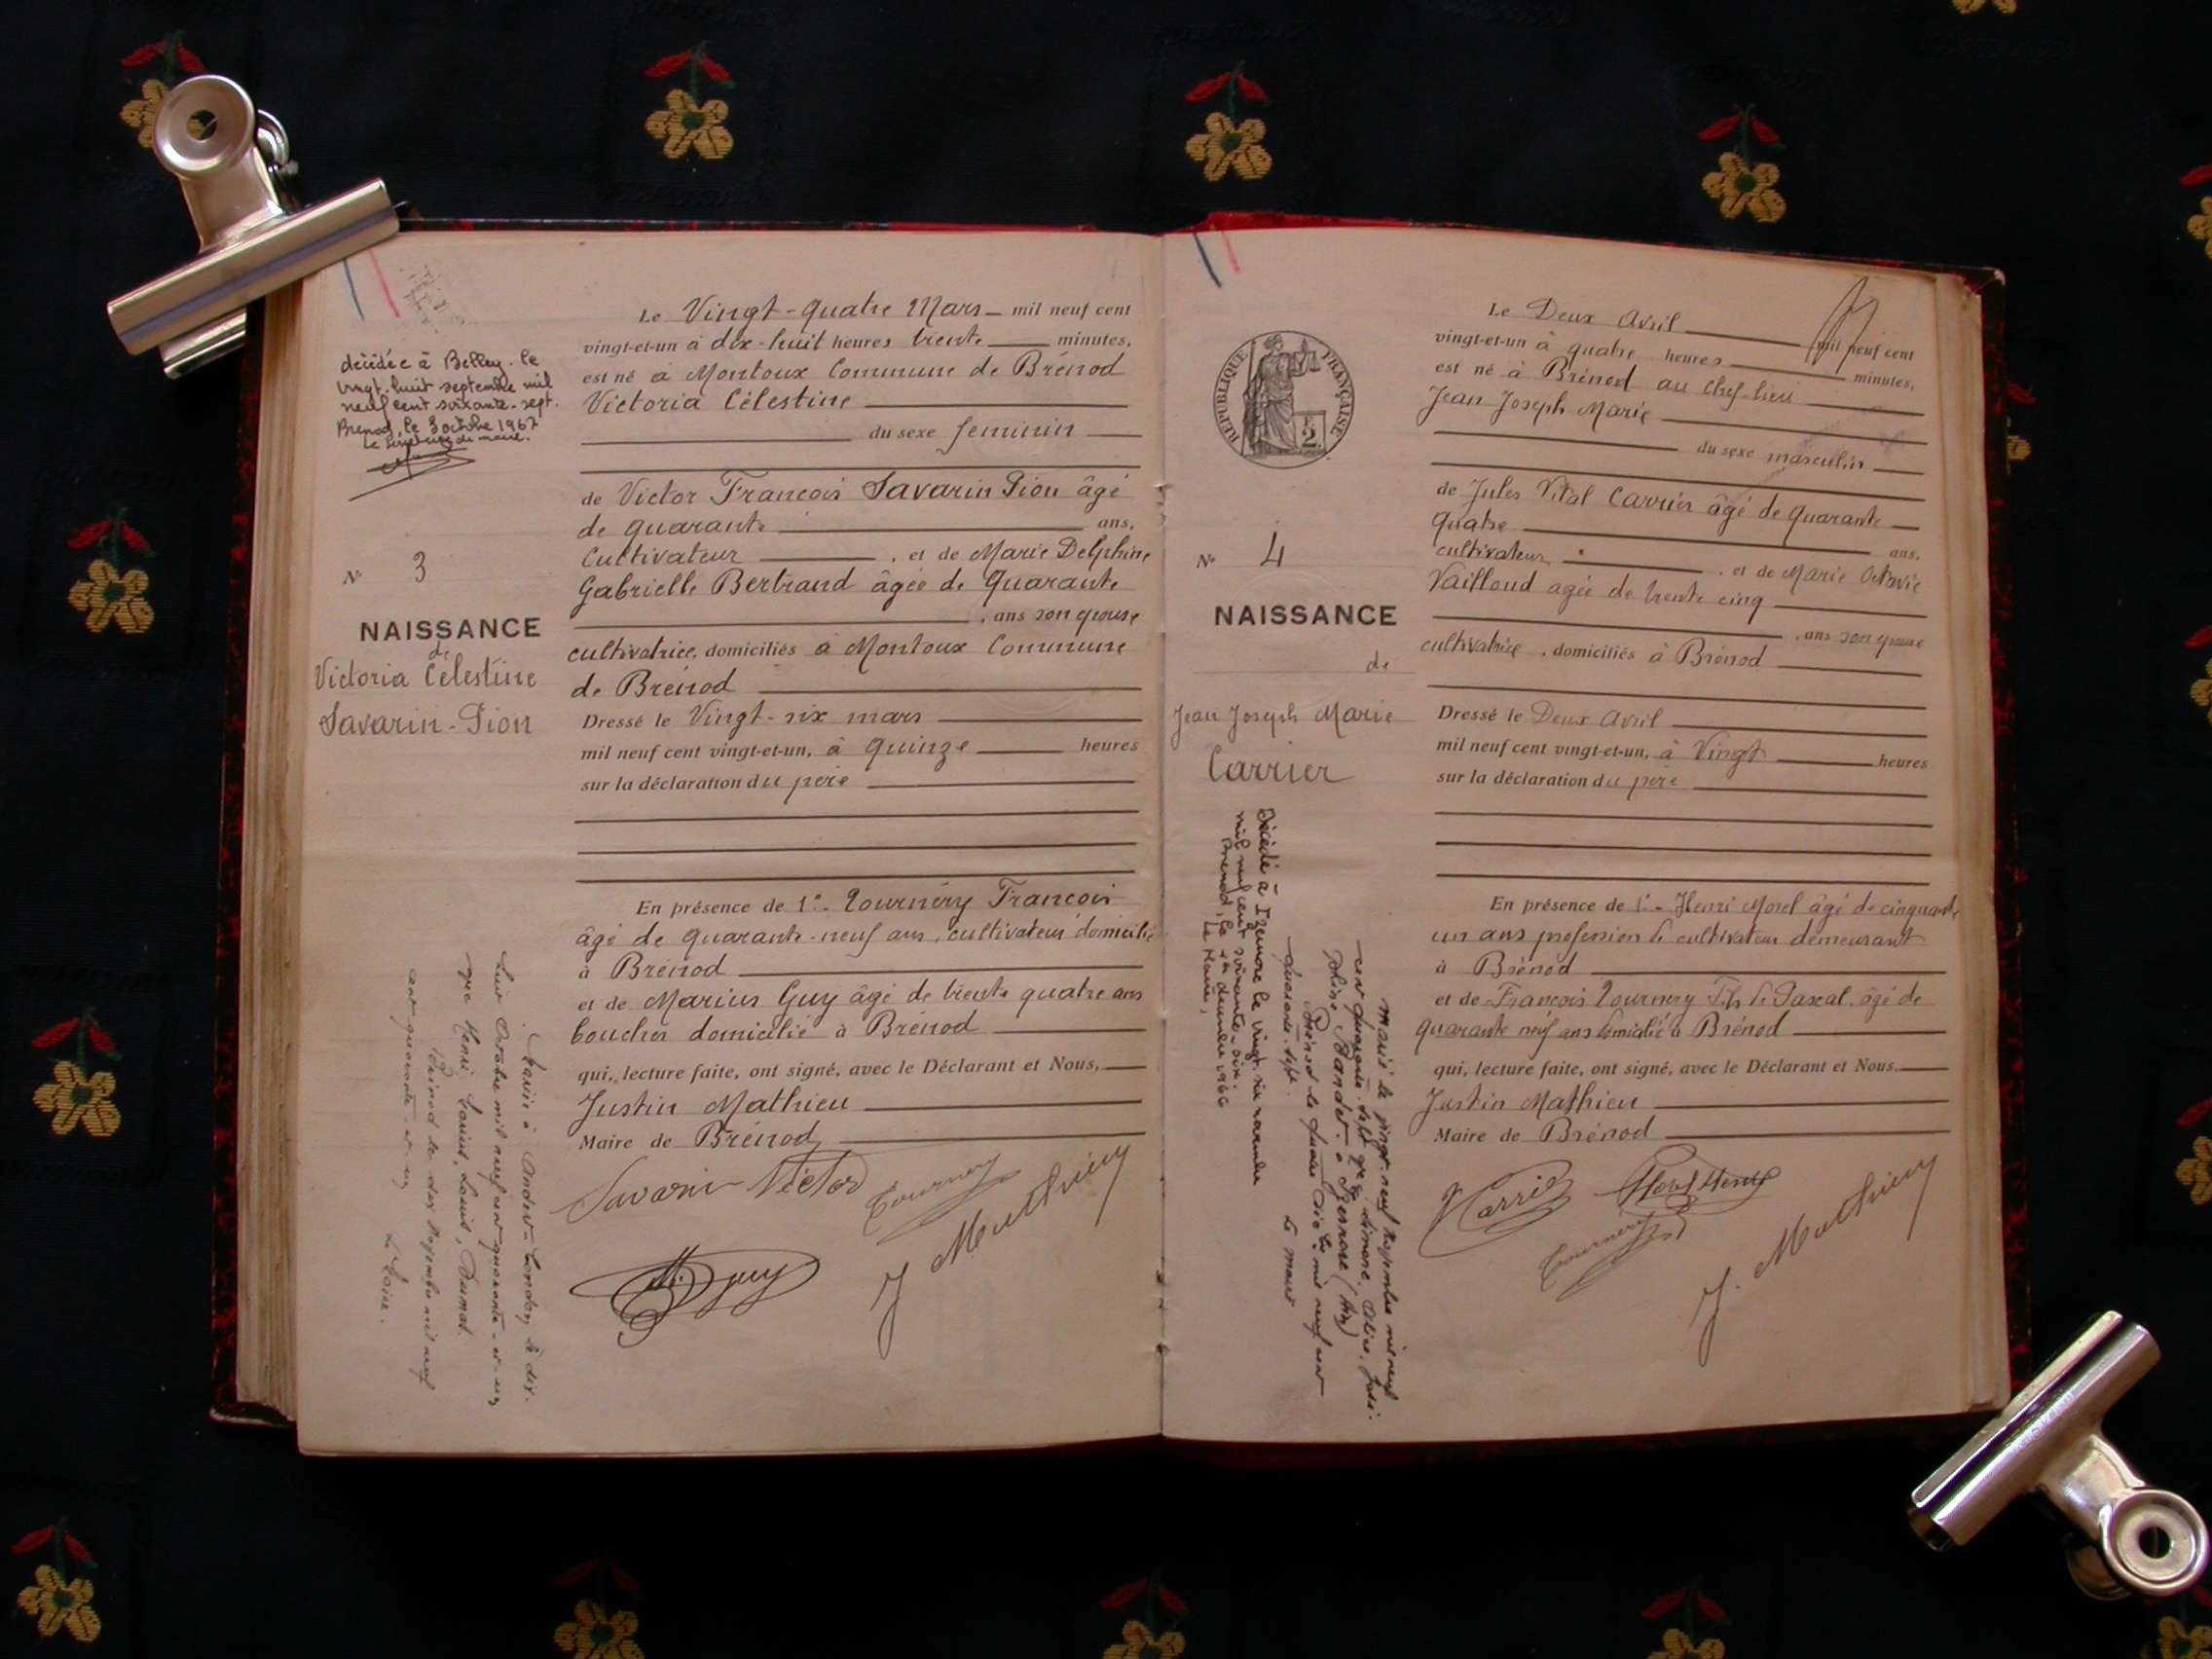 décédée à Belley. le
vingt-huit septembre mil
neuf cent soixante-sept.
Brenod, le 3 octobre 1967
Le Secrétaire de mairie.
N° 3
NAISSANCE
de
Victoria Célestine
Savarin-Pion
huit Octobre mil neuf cent quarante-et-un
Brénod le dix Novembre mil neuf
cent quarante-et-un
Le Maire.
Le Vingt-quatre Mars mil neuf cent
vingt-et-un à dix-huit heures trente minutes,
est né à Montoux Commune de Brénod
Victoria Célestine
du sexe feminin
de Victor François Savarin Pion âgé
de quarante ans,
Cultivateur , et de Marie Delphine
Gabrielle Bertrand âgée de Quarante
, ans son épouse
cultivatrice, domiciliés à Montoux Commune
de Brénod
Dressé le Vingt-six mars
mil neuf cent vingt-et-un, à quinze heures
sur la déclaration du père
En présence de 1° Tournery François
âgé de quarante-neuf ans, cultivateur domicilié
à Brénod
et de Marius Guy âgé de trente quatre ans
boucher domicilié à Brénod
qui, lecture faite, ont signé, avec le Déclarant et Nous,
Justin Mathieu
Maire de Brénod
Savarin Victor Tournery
J Mathieu
M. Guy
REPUBLIQUE FRANÇAISE
2
N° 4
NAISSANCE
de
Jean Joseph Marie
Carrier
Décédé à Izernore le vingt six novembre
mil neuf cent soixante-six.
Brenod, le décembre 1966
Le Maire,
Marié le vingt-neuf Novembre mil neuf
cent quarante-sept
Brénod le quatre Dix mil neuf cent
quarante-sept.
Le Maire
Le Deux Avril mil neuf cent
vingt-et-un à quatre heures minutes,
est né à Brénod au chef-lieu
Jean Joseph Marie
du sexe masculin
de Jules Vital Carrier âgé de quarante
quatre ans,
cultivateur , et de Marie Octavie
Vailloud agée de trente cinq
, ans son épouse
cultivatrice, domiciliés à Brénod
Dressé le Deux Avril
mil neuf cent vingt-et-un, à Vingt heures
sur la déclaration du père
En présence de 1° Henri Morel âgé de cinquante
un ans profession de cultivateur demeurant
à Brénod
et de François Tournery fils de Pascal, âgé de
quarante neuf ans domicilié à Brénod
qui, lecture faite, ont signé, avec le Déclarant et Nous,
Justin Mathieu
Maire de Brénod
Carrier Morel Henri
Tournery
J. Mathieu